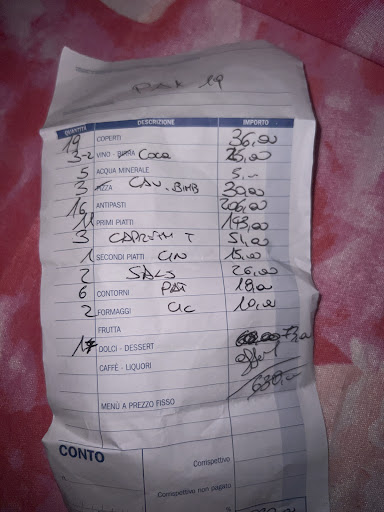 QUANTITÀ DESCRIZIONE IMPORTO
19 COPERTI 36,00
3-2 VINO - BIRRA Coca 26,00
5 ACQUA MINERALE 5,-
3 PIZZA CAV. BIMB 30,00
16 ANTIPASTI 206,00
11 PRIMI PIATTI 143,00
3 T 51,00
1 SECONDI PIATTI 15,00
2 SALS 26,00
6 CONTORNI PAT 18,00
2 FORMAGGI CIC 10,00
FRUTTA
DOLCI - DESSERT
CAFFÈ - LIQUORI
630,00
MENÙ A PREZZO FISSO
CONTO
Corrispettivo
Corrispettivo non pagato
%